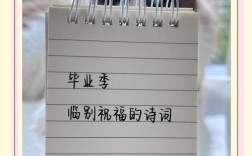 毕业季
临别祝福的诗词